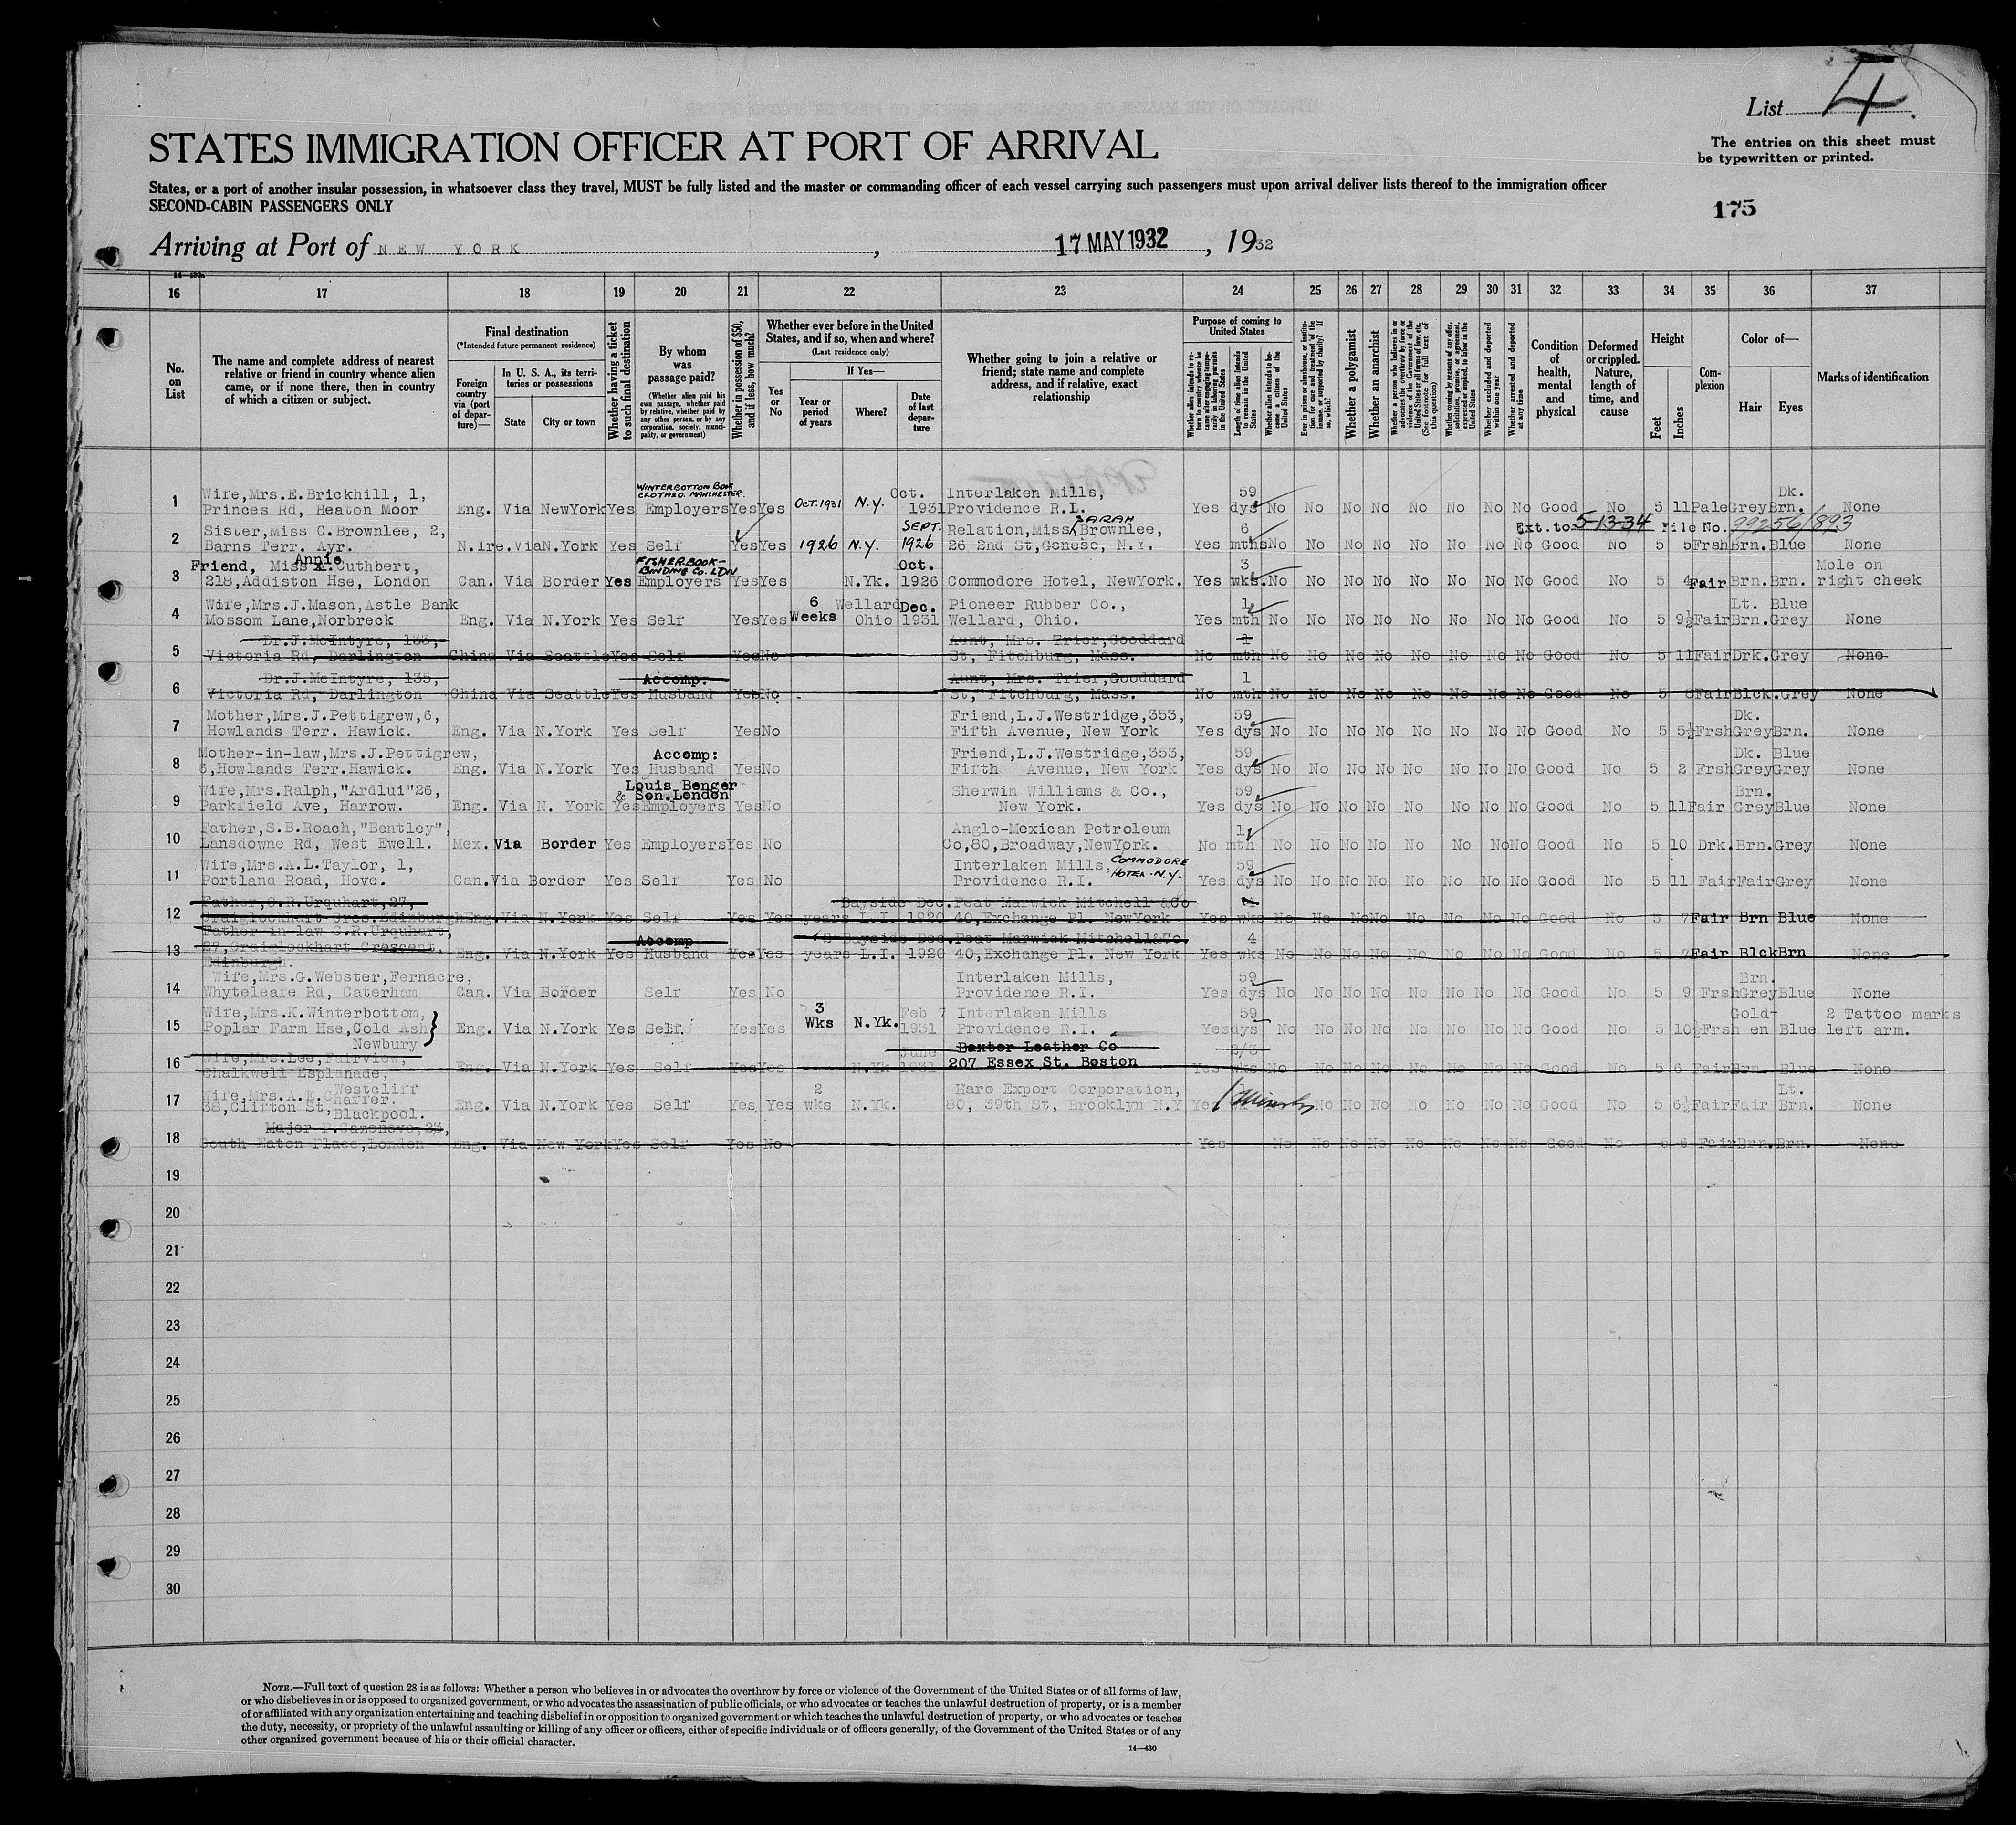 List 4.
The entries on this sheet must
be typewritten or printed.
STATES IMMIGRATION OFFICER AT PORT OF ARRIVAL
States, or a port of another insular possession, in whatsoever class they travel, MUST be fully listed and the master or commanding officer of each vessel carrying such passengers must upon arrival deliver lists thereof to the immigration officer
SECOND-CABIN PASSENGERS ONLY
175
Arriving at Port of NEW YORK, 17 MAY 1932, 1932
14—430
16 17 18 19 20 21 22 23 24 25 26 27 28 29 30 31 32 33 34 35 36 37
No. on List
The name and complete address of nearest relative or friend in country whence alien came, or if none there, then in country of which a citizen or subject.
Final destination
(*Intended future permanent residence)
Foreign country via (port of departure)—
In U. S. A., its territories or possessions
State
City or town
Whether having a ticket to such final destination
By whom was passage paid?
(Whether alien paid his own passage, whether paid by relative, whether paid by any other person, or by any corporation, society, municipality, or government)
Whether in possession of $50, and if less, how much?
Whether ever before in the United States, and if so, when and where?
(Last residence only)
Yes or No
If Yes—
Year or period of years
Where?
Date of last departure
Whether going to join a relative or friend; state name and complete address, and if relative, exact relationship
Purpose of coming to United States
Whether alien intends to return to country whence he came after engaging temporarily in laboring pursuits in the United States
Length of time alien intends to remain in the United States
Whether alien intends to become a citizen of the United States
Ever in prison or almshouse, or institution for care and treatment of the insane, or supported by charity? If so, which?
Whether a polygamist
Whether an anarchist
Whether a person who believes in or advocates the overthrow by force or violence of the Government of the United States or all forms of law, etc. (See footnote for full text of this question)
Whether coming by reasons of any offer, solicitation, promise, or agreement, expressed or implied, to labor in the United States
Whether excluded and deported within one year
Whether arrested and deported at any time
Condition of health, mental and physical
Deformed or crippled. Nature, length of time, and cause
Height
Feet
Inches
Complexion
Color of—
Hair
Eyes
Marks of identification
WINTERBOTTOM BOOK
CLOTH CO. MANCHESTER.
1 Wife,Mrs.E.Brickhill, 1, Oct. Interlaken Mills, 59 Dk.
Princes Rd, Heaton Moor Eng. Via NewYork Yes Employers Yes Yes OCT.1931 N.Y. 1931 Providence R.I. Yes dys No No No No No No No No Good No 5 11 Pale Grey Brn. None
Ext.to 5-13-34 File No. 99956/893
2 Sister,Miss C.Brownlee, 2, SEPT. Relation,Miss SARAH Brownlee, 6
Barns Terr. Ayr. N.Ire. Via N.York Yes Self Yes Yes 1926 N.Y. 1926 26 2nd St,Geneso, N.Y. Yes mths No No No No No No No No Good No 5 5 Frsh Brn. Blue None
3 Friend, Miss Annie Cuthbert, FISHER BOOK-BINDING Co. LDN Oct. 3 Mole on
218,Addiston Hse, London Can. Via Border Yes Employers Yes Yes N.Yk. 1926 Commodore Hotel, NewYork. Yes wks. No No No No No No No No Good No 5 4 Fair Brn. Brn. right cheek
4 Wife,Mrs.J.Mason,Astle Bank 6 Wellard Dec. Pioneer Rubber Co., 1 Lt. Blue
Mossom Lane,Norbreck Eng. Via N.York Yes Self Yes Yes Weeks Ohio 1931 Wellard, Ohio. Yes mth No No No No No No No No Good No 5 9½ Fair Brn. Grey None
5 Dr.J.McIntyre, 133, Aunt, Mrs. Trier,Gooddard 1
Victoria Rd, Darlington China Via Seattle Yes Self Yes No St, Fitchburg, Mass. No mth No No No No No No No No Good No 5 11 Fair Drk. Grey None
6 Dr.J.McIntyre, 135, Accomp. Aunt, Mrs. Trier,Gooddard 1
Victoria Rd, Darlington China Via Seattle Yes Husband Yes No St, Fitchburg, Mass. No mth No No No No No No No No Good No 5 8 Fair Blck. Grey None
7 Mother,Mrs.J.Pettigrew,6, Friend,L.J.Westridge,353, 59 Dk.
Howlands Terr. Hawick. Eng. Via N.York Yes Self Yes No Fifth Avenue, New York Yes dys No No No No No No No No Good No 5 5½ Frsh Grey Brn. None
8 Mother-in-law,Mrs.J.Pettigrew, Accomp: Friend,L.J.Westridge,353, 59 Dk. Blue
6,Howlands Terr.Hawick. Eng. Via N.York Yes Husband Yes No Fifth Avenue, New York Yes dys No No No No No No No No Good No 5 2 Frsh Grey Grey None
9 Wife,Mrs.Ralph,"Ardlui"26, Louis Benger & Son.London Sherwin Williams & Co., 59 Brn.
Parkfield Ave, Harrow. Eng. Via N. York Yes Employers Yes No New York. Yes dys No No No No No No No No Good No 5 11 Fair Grey Blue None
10 Father,S.B.Roach,"Bentley", Anglo-Mexican Petroleum 1
Lansdowne Rd, West Ewell. Mex. Via Border Yes Employers Yes No Co,80,Broadway,NewYork. No mth No No No No No No No No Good No 5 10 Drk. Brn. Grey None
11 Wife,Mrs.A.L.Taylor, 1, Interlaken Mills, COMMODORE HOTEL.N.Y. 59
Portland Road, Hove. Can. Via Border Yes Self Yes No Providence R.I. Yes dys No No No No No No No No Good No 5 11 Fair Fair Grey None
12 Father,C.R.Urquhart,27, Bayside Dec. Peat Marwick Mitchell &Co
Craiglockhart Cres.Edinburgh Eng. Via N.York Yes Self Yes Yes years L.I. 1920 40,Exchange Pl. NewYork Yes wks No No No No No No No No Good No 5 7 Fair Brn Blue None
13 Father-in-law C.R.Urquhart, Accomp Bayside Dec. Peat Marwick Mitchell&Co 4
27,Craiglockhart Crescent, Edinburgh. Eng. Via N.York Yes Husband Yes Yes years L.I. 1920 40,Exchange Pl. New York Yes wks No No No No No No No No Good No 5 7 Fair Blck Brn None
14 Wife,Mrs.G.Webster,Fernacre, Interlaken Mills, 59 Brn.
Whyteleafe Rd, Caterham Can. Via Border Self Yes No Providence R.I. Yes dys No No No No No No No No Good No 5 9 Frsh Grey Blue None
15 Wife,Mrs.K.Winterbottom, 3 Feb 7 Interlaken Mills 59 Gold- 2 Tattoo marks
Poplar Farm Hse,Cold Ash Newbury Eng. Via N.York Yes Self. Yes Yes Wks N.Yk. 1931 Providence R.I. Yes dys No No No No No No No No Good No 5 10½ Frsh en Blue left arm.
16 Wife,Mrs.Lee,Fairview, June Baxter Leather Co 2/3
Chalkwell Esplanade, Westcliff Eng. Via N.York Yes Self Yes Yes N.Yk 1931 207 Essex St. Boston Yes wks No No No No No No No No Good No 5 6 Fair Brn. Blue None
17 Wife,Mrs.A.E.Chaffer. 2 Haro Export Corporation, Lt.
38,Clifton St,Blackpool. Eng. Via N.York Yes Self Yes Yes wks N.Yk. 80, 39th St, Brooklyn N.Y No No No No No No No Good No 5 6½ Fair Fair Brn. None
18 Major P.Cazenove,23,
South Eaton Place,London Eng. Via New York Yes Self Yes No Yes No No No No No No No No Good No 5 6 Fair Brn. Brn. None
19
20
21
22
23
24
25
26
27
28
29
30
NOTE.—Full text of question 28 is as follows: Whether a person who believes in or advocates the overthrow by force or violence of the Government of the United States or of all forms of law,
or who disbelieves in or is opposed to organized government, or who advocates the assassination of public officials, or who advocates or teaches the unlawful destruction of property, or is a member
of or affiliated with any organization entertaining and teaching disbelief in or opposition to organized government or which teaches the unlawful destruction of property, or who advocates or teaches
the duty, necessity, or propriety of the unlawful assaulting or killing of any officer or officers, either of specific individuals or of officers generally, of the Government of the United States or of any
other organized government because of his or their official character.
14—430